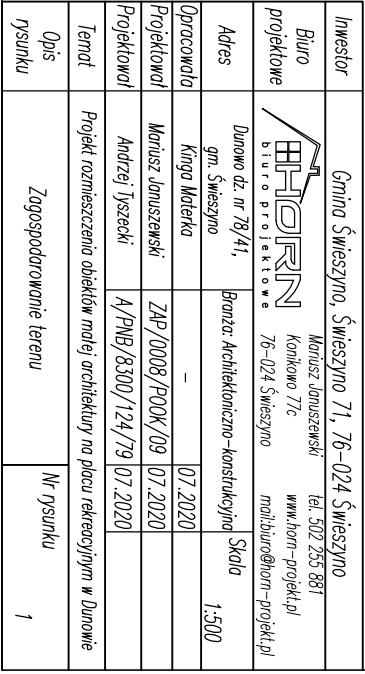 Inwestor
Gmina Świeszyno, Świeszyno 71, 76-024 Świeszyno
Biuro
projektowe
HORN
biuro projektowe
Mariusz Januszewski
Konikowo 77c
76-024 Świeszyno
tel. 502 255 881
www.horn-projekt.pl
mail:biuro@horn-projekt.pl
Adres
Dunowo dz. nr 78/41,
gm. Świeszyno
Branża: Architektoniczno-konstrukcyjna
Skala
1:500
Opracowała
Kinga Materka
-
07.2020
Projektował
Mariusz Januszewski
ZAP/0008/POOK/09
07.2020
Projektował
Andrzej Tyszecki
A/PNB/8300/124/79
07.2020
Temat
Projekt rozmieszczenia obiektów małej architektury na placu rekreacyjnym w Dunowie
Opis
rysunku
Zagospodarowanie terenu
Nr rysunku
1